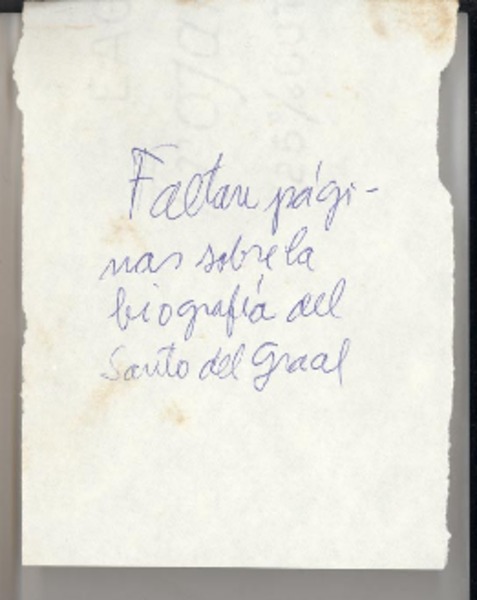 Faltan pági-
nas sobre la
biografía del
Santo del Graal